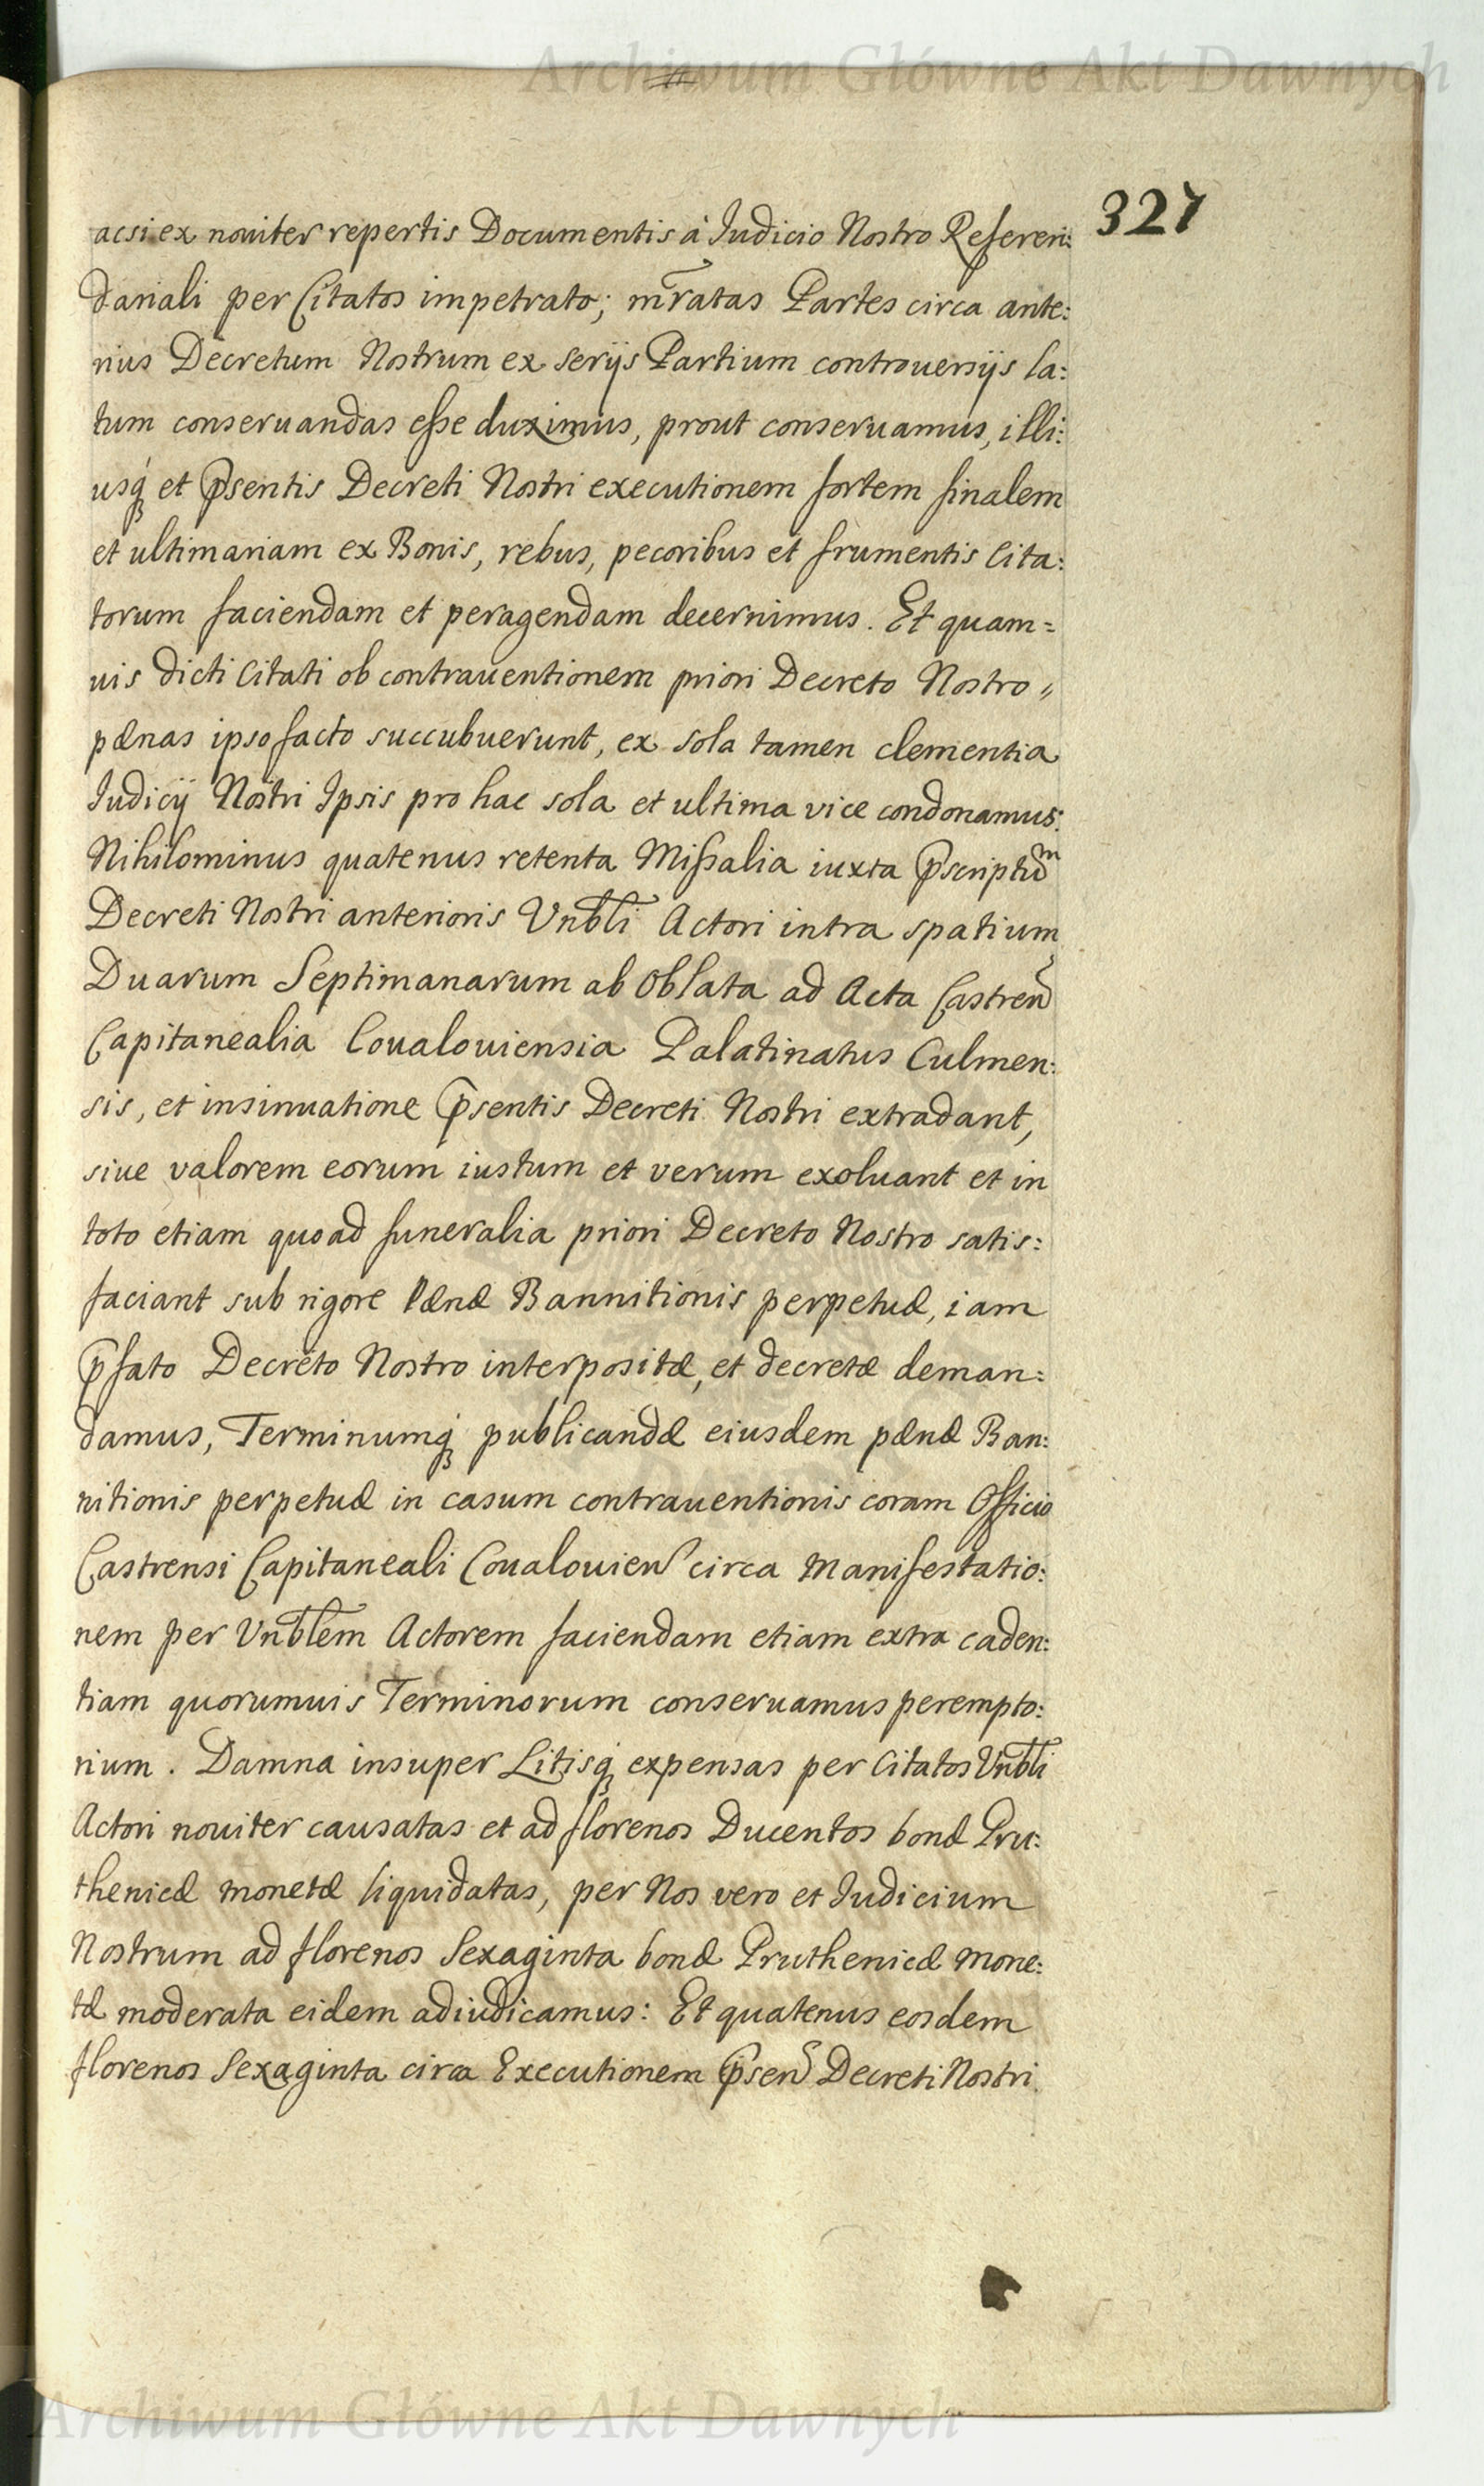 Archiwum Główne Akt Dawnych
327
acsi ex noviter repertis Documentis à Iudicio Nostro Referen:
dariali per Citatos impetrato; mratas Partes circa ante:
rius Decretum Nostrum ex serijs Partium controuersijs la:
tum conseruandas esse duximus, prout conseruamus, illi:
usq́ et p̃sentis Decreti Nostri executionem fortem finalem
et ultimariam ex Bonis, rebus, pecoribus et frumentis Cita:
torum faciendam et peragendam decernimus. Et quam=
uis dicti Citati ob contrauentionem priori Decreto Nostro〃
pænas ipso facto succubuerunt, ex sola tamen clementia
Iudicij Nostri Ipsis pro hac sola et ultima vice condonamus:
Nihilominus quatenus retenta Missalia iuxta p̃scriptũm
Decreti Nostri anterioris Vnbli Actori intra spatium
Duarum Septimanarum ab Oblata ad Acta Castren̄
Capitanealia Coualouiensia Palatinatus Culmen:
sis, et insinuatione p̃sentis Decreti Nostri extradant,
siue valorem eorum iustum et verum exoluant et in
toto etiam quoad funeralia priori Decreto Nostro satis:
faciant sub rigore Pænæ Bannitionis perpetuæ, iam
p̃fato Decreto Nostro interpositæ, et decretæ deman:
damus, Terminumq́ publicandæ eiusdem pænæ Ban:
nitionis perpetuæ in casum contrauentionis coram Officio
Castrensi Capitaneali Coualouien̄ circa Manifestatio:
nem per Vnblem Actorem faciendam etiam extra caden:
tiam quorumuis Terminorum conseruamus perempto:
rium. Damna insuper Litisq́ expensas per Citatos Vnbli
Actori nouiter causatas et ad florenos Ducentos bonæ Pru:
thenicæ monetæ liquidatas, per Nos vero et Iudicium
Nostrum ad florenos Sexaginta bonæ Pruthenicæ Mone:
tæ moderata eidem adiudicamus: Et quatenus eosdem
florenos Sexaginta circa Executionem p̃sen̄ Decreti Nostri
Archiwum Główne Akt Dawnych